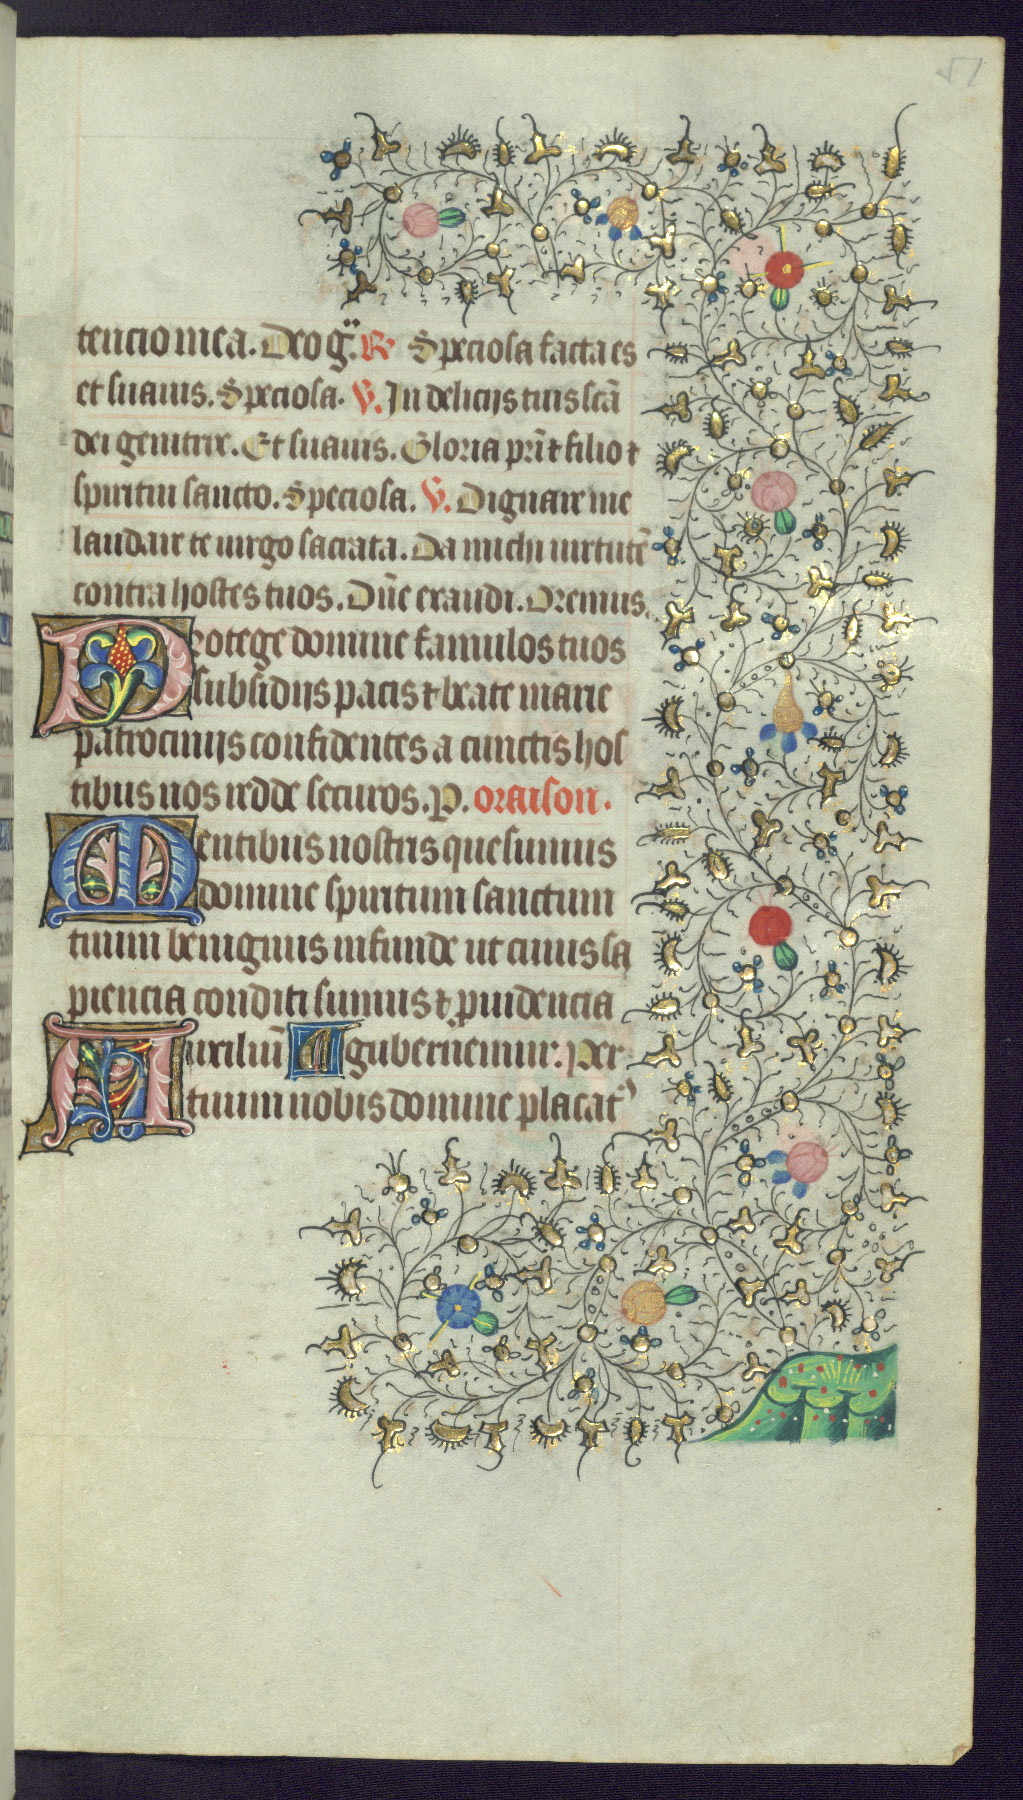 51
tencio mea. Deo g̃. R̷ Speciosa facta es
et suauis. Speciosa. V̷. In delicijs tuis scã
dei genitrix. Et suauis. Gloria pr̃i ⁊ filio ⁊
spiritui sancto. Speciosa. V̷. Dignare me
laudare te uirgo sacrata. Da michi uirtutẽ
contra hostes tuos. Dñe exaudi. Oremus.
Protege domine famulos tuos
subsidijs pacis ⁊ beate marie
patrocinijs confidentes a cunctis hos
tibus nos redde securos. P. oraison.
Mentibus nostris quesumus
domine spiritum sanctum
tuum benignus infunde ut cuius sa
piencia conditi sumus ⁊ prouidencia
Auxiliũ A gubernemur. Per
tuum nobis domine placat᷑